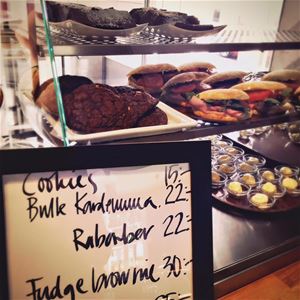 Cookies 15:-
Bulle Kardemma. 22:-
Rabarber 22:-
Fudge brownie 30:-